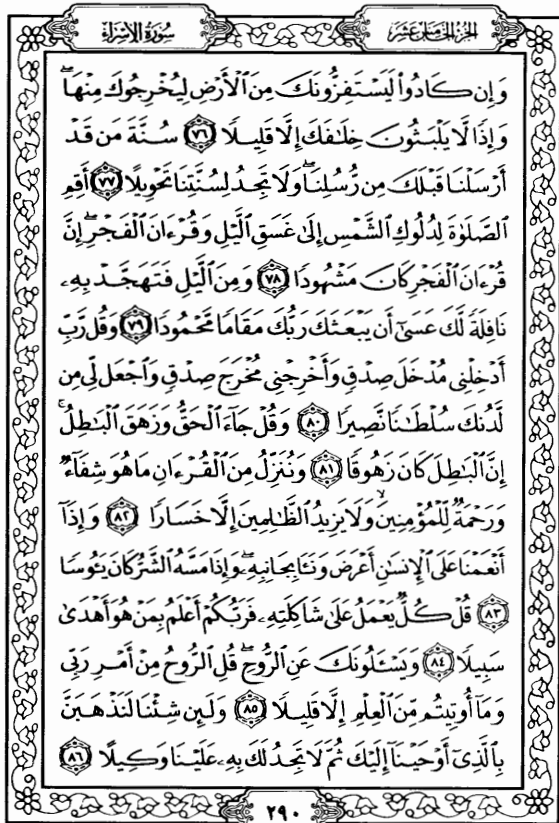 سُورَةُ الإِسْرَاءِ
الجُزْءُ الخَامِسَ عَشَرَ
وَإِن كَادُوا۟ لَيَسْتَفِزُّونَكَ مِنَ ٱلْأَرْضِ لِيُخْرِجُوكَ مِنْهَا ۖ
وَإِذًا لَّا يَلْبَثُونَ خِلَٰفَكَ إِلَّا قَلِيلًا ٧٦ سُنَّةَ مَن قَدْ
أَرْسَلْنَا قَبْلَكَ مِن رُّسُلِنَا ۖ وَلَا تَجِدُ لِسُنَّتِنَا تَحْوِيلًا ٧٧ أَقِمِ
ٱلصَّلَوٰةَ لِدُلُوكِ ٱلشَّمْسِ إِلَىٰ غَسَقِ ٱلَّيْلِ وَقُرْءَانَ ٱلْفَجْرِ ۖ إِنَّ
قُرْءَانَ ٱلْفَجْرِ كَانَ مَشْهُودًا ٧٨ وَمِنَ ٱلَّيْلِ فَتَهَجَّدْ بِهِۦ
نَافِلَةً لَّكَ عَسَىٰٓ أَن يَبْعَثَكَ رَبُّكَ مَقَامًا مَّحْمُودًا ٧٩ وَقُل رَّبِّ
أَدْخِلْنِى مُدْخَلَ صِدْقٍ وَأَخْرِجْنِى مُخْرَجَ صِدْقٍ وَٱجْعَل لِّى مِن
لَّدُنكَ سُلْطَٰنًا نَّصِيرًا ٨٠ وَقُلْ جَآءَ ٱلْحَقُّ وَزَهَقَ ٱلْبَٰطِلُ ۚ
إِنَّ ٱلْبَٰطِلَ كَانَ زَهُوقًا ٨١ وَنُنَزِّلُ مِنَ ٱلْقُرْءَانِ مَا هُوَ شِفَآءٌ
وَرَحْمَةٌ لِّلْمُؤْمِنِينَ ۙ وَلَا يَزِيدُ ٱلظَّٰلِمِينَ إِلَّا خَسَارًا ٨٢ وَإِذَآ
أَنْعَمْنَا عَلَى ٱلْإِنسَٰنِ أَعْرَضَ وَنَـَٔا بِجَانِبِهِۦ ۖ وَإِذَا مَسَّهُ ٱلشَّرُّ كَانَ يَـُٔوسًا
٨٣ قُلْ كُلٌّ يَعْمَلُ عَلَىٰ شَاكِلَتِهِۦ فَرَبُّكُمْ أَعْلَمُ بِمَنْ هُوَ أَهْدَىٰ
سَبِيلًا ٨٤ وَيَسْـَٔلُونَكَ عَنِ ٱلرُّوحِ ۖ قُلِ ٱلرُّوحُ مِنْ أَمْرِ رَبِّى
وَمَآ أُوتِيتُم مِّنَ ٱلْعِلْمِ إِلَّا قَلِيلًا ٨٥ وَلَئِن شِئْنَا لَنَذْهَبَنَّ
بِٱلَّذِىٓ أَوْحَيْنَآ إِلَيْكَ ثُمَّ لَا تَجِدُ لَكَ بِهِۦ عَلَيْنَا وَكِيلًا ٨٦
٢٩٠